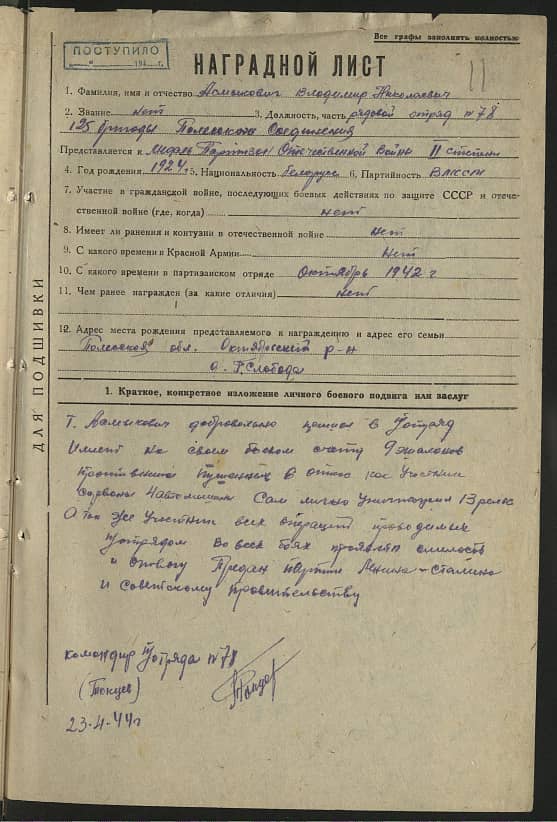 Все графы заполнять полностью
ПОСТУПИЛО
194 г.
НАГРАДНОЙ ЛИСТ
11
1. Фамилия, имя и отчество Владимир Николаевич
2. Звание нет 3. Должность, часть рядовой отряд №78
125 бригады Полесского Соединения
Представляется к медаль Партизан Отечественной Войны II степени
4. Год рождения 1924 г. 5. Национальность белорус 6. Партийность ВЛКСМ
7. Участие в гражданской войне, последующих боевых действиях по защите СССР и отече-
ственной войне (где, когда) нет
8. Имеет ли ранения и контузии в отечественной войне нет
9. С какого времени в Красной Армии нет
10. С какого времени в партизанском отряде Октябрь 1942 г
11. Чем ранее награжден (за какие отличия) нет
12. Адрес места рождения представляемого к награждению и адрес его семьи
Полесская обл. Октябрьский р-н
д. Р. Слобода
ДЛЯ ПОДШИВКИ
1. Краткое, конкретное изложение личного боевого подвига или заслуг
Т. добровольно пришел в П/отряд
Имеет на своем боевом счету 9 эшелонов
противника пущенных в откос как участник
Сам лично уничтожил 13
А так же участник всех операций проводимых
П/отрядом Во всех боях проявлял смелость
и отвагу Предан Партии Ленина-Сталина
и Советскому правительству
командир П/отряда №78
23-4-44г